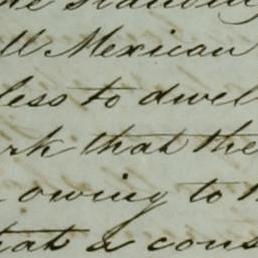 ll Mexican
less to dwel
rk that the
owing to
hat a cons